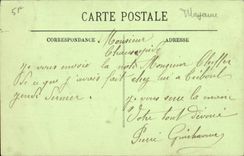 5f
CARTE POSTALE
Mayenne
CORRESPONDANCE
ADRESSE
Monsieur
je vous envoie la note Monsieur
de ce que j'avais fait chez lui a
jeudi dernier
je vous serre la main
Votre tout dévoué
Pierre